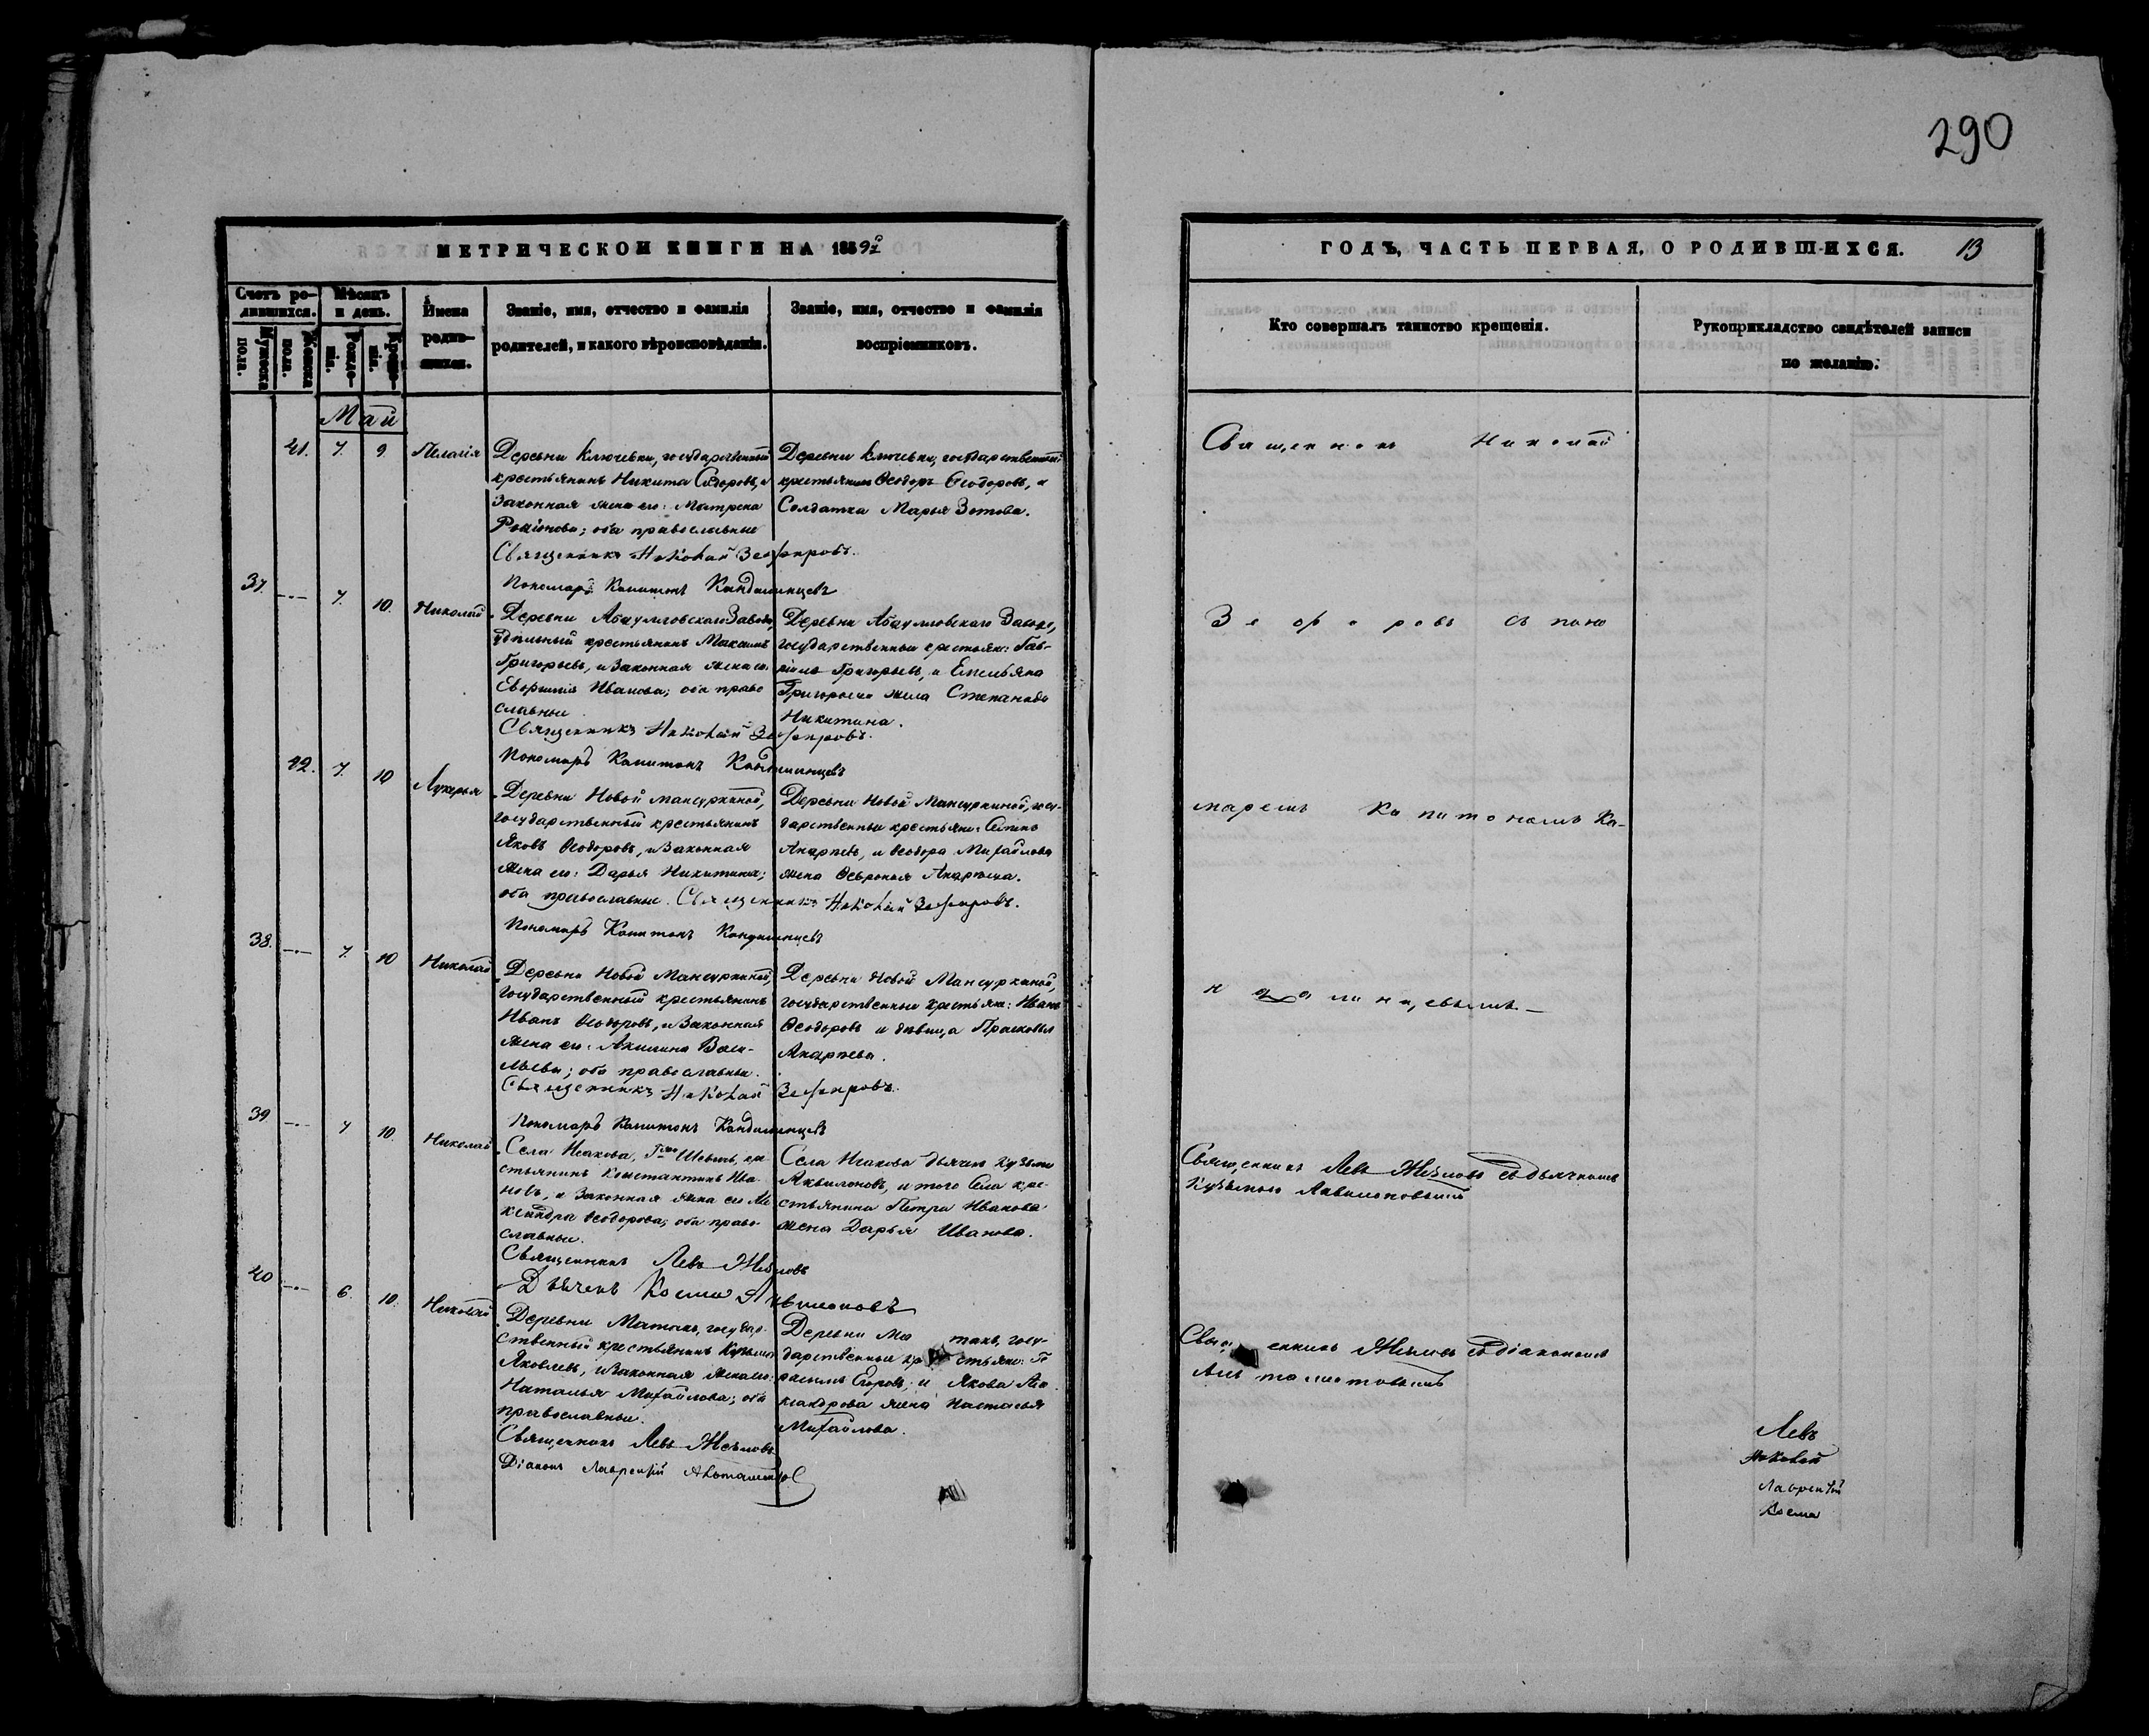 290
МЕТРИЧЕСКОЙ КНИГИ НА 1859й
ГОДЪ, ЧАСТЬ ПЕРВАЯ, О РОДИВШИХСЯ. 13
Счетъ родившихся.
Мужска пола.
Женска пола.
Мѣсяцъ и день.
Рожденія.
Крещенія.
Имена родившихся.
Званіе, имя, отчество и фамилія
родителей, и какого вѣроисповѣданія.
Званіе, имя, отчество и фамилія
воспріемниковъ.
Кто совершалъ таинство крещенія.
Рукоприкладство свидѣтелей записи
по желанію.
Май
41. 7. 9. Пелагія
Деревни Ключевки, государственный
крестьянинъ Никита Сидоровъ, и
законная жена его: Матрена
Родіонова; оба православные
Деревни Ключевки, государственный
крестьянинъ Ѳеодоръ Ѳеодоровъ, и
Солдатка Марья Зотова.
Священникъ Николай Зефировъ.
Пономарь Капитонъ Кандалинцевъ
37. 7. 10. Николай
Деревни Абдулловскаго Завода,
удѣльный крестьянинъ Максимъ
Григорьевъ, и законная жена его
Евфимія Иванова; оба право
славные
Деревни Абдулловскаго Завода,
государственные крестьяне: Гав-
ріилъ Григорьевъ, и Емельяна
Григорьева жена Степанида
Никитина.
Священникъ Николай Зефировъ.
Пономарь Капитонъ Кандалинцевъ
42. 7. 10 Лукерья
Деревни Новой Мансуркиной,
государственный крестьянинъ
Яковъ Ѳеодоровъ, и законная
жена его: Дарья Никитина;
оба православные.
Деревни Новой Мансуркиной, госу-
дарственные крестьяне:
и Ѳеодора Михайлова
жена Февронья
Священникъ Николай Зефировъ.
Пономарь Капитонъ Кандалинцевъ
38. 7. 10 Николай
Деревни Новой Мансуркиной,
государственный крестьянинъ
Иванъ Ѳеодоровъ, и законная
жена его: Акилина Васи-
льева; оба православные.
Деревни Новой Мансуркиной,
государственные крестьяне: Иванъ
Ѳеодоровъ и дѣвица Прасковья
Священникъ Николай Зефировъ.
Пономарь Капитонъ Кандалинцевъ
39. 7 10. Николай
Села Исакова, кре
стьянинъ Константинъ Ива
новъ, и законная жена его Але
ксандра Ѳеодорова; оба право
славные.
Села Исакова дьячекъ Кузьма
Аквилоновъ, и того села кре-
стьянина Петра Иванова
жена Дарья Иванова.
Священникъ Левъ
Дьячекъ Косма Аквилоновъ
40 6. 10. Николай
Деревни Матакъ, государ
ственный крестьянинъ Кузьма
Яковлевъ, и законная жена его:
Наталья Михайлова; оба
православные.
Деревни Матакъ, госу-
дарственные крестьяне:
Егоровъ; и Якова Але
ксандрова жена Настасья
Михайлова.
Священникъ Левъ
Діаконъ Лаврентій
Священникъ Николай
Зефировъ съ поно
маремъ Капитономъ Ка-
ндалинцевымъ
Священникъ Левъ съ дьячкомъ
Кузьмою Аквилоновымъ
Священникъ съ діакономъ
Левъ
Николай
Лаврентій
Косма